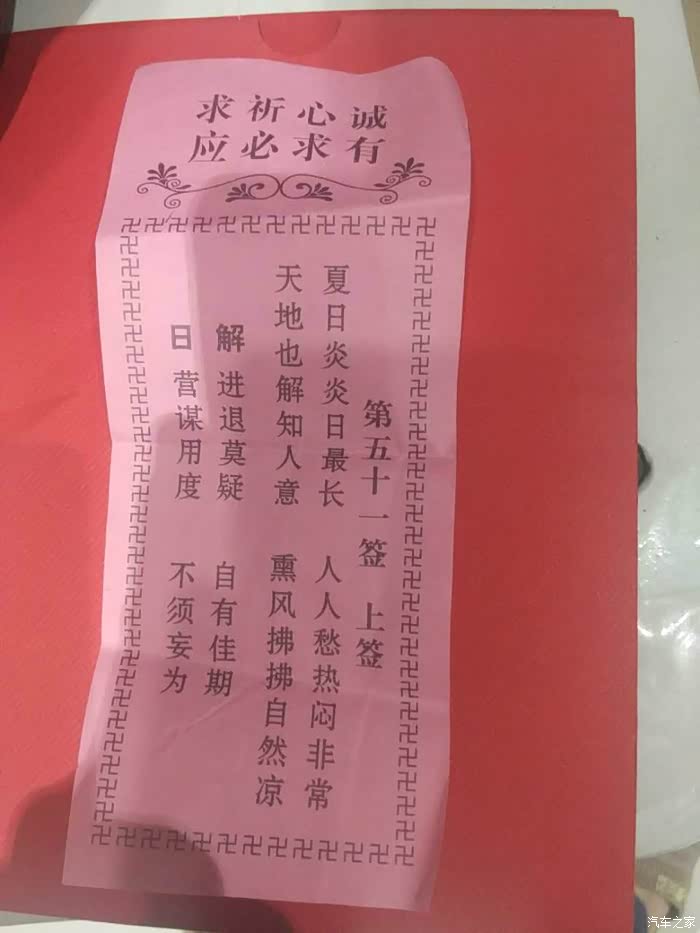 诚心祈求
有求必应
第五十一签 上签
夏日炎炎日最长 人人愁热闷非常
天地也解知人意 熏风拂拂自然凉
解 进退莫疑 自有佳期
日 营谋用度 不须妄为
汽车之家